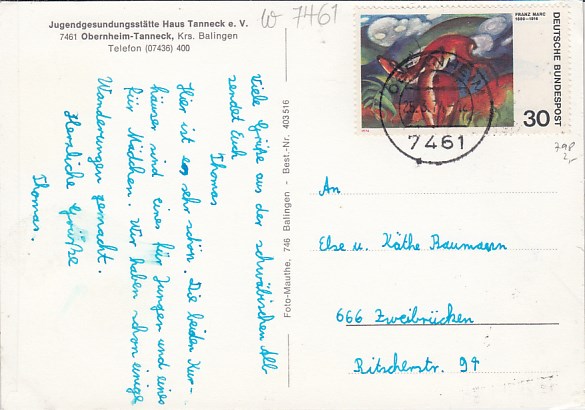 Jugendgesundungsstätte Haus Tanneck e. V.
7461 Obernheim-Tanneck, Krs. Balingen
Telefon (07436) 400
W 7461
FRANZ MARC
1880-1916
DEUTSCHE BUNDESPOST
30
7461
Viele Grüße aus der schwäbischen Alb
sendet Euch
Thomas
Hier ist es sehr schön. Die beiden Kur-
häuser sind eines für Jungen und eines
für Mädchen. Wir haben schon einige
Wanderungen gemacht.
Herzliche Grüße
Thomas.
Foto-Mauthe, 746 Balingen - Best.-Nr. 403516
An
Else u. Käthe Baumann
666 Zweibrücken
Ritscherstr. 94